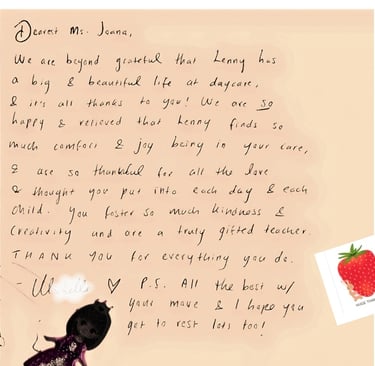 Dearest Ms. Joana,
We are beyond grateful that Lenny has
a big & beautiful life at daycare,
& it's all thanks to you! We are so
happy & relieved that Lenny finds so
much comfort & joy being in your care,
& are so thankful for all the love
& thought you put into each day & each
child. You foster so much kindness &
creativity and are a truly gifted teacher.
THANK YOU for everything you do.
- ♡ P.S. All the best w/
your move & I hope you
get to rest lots too!